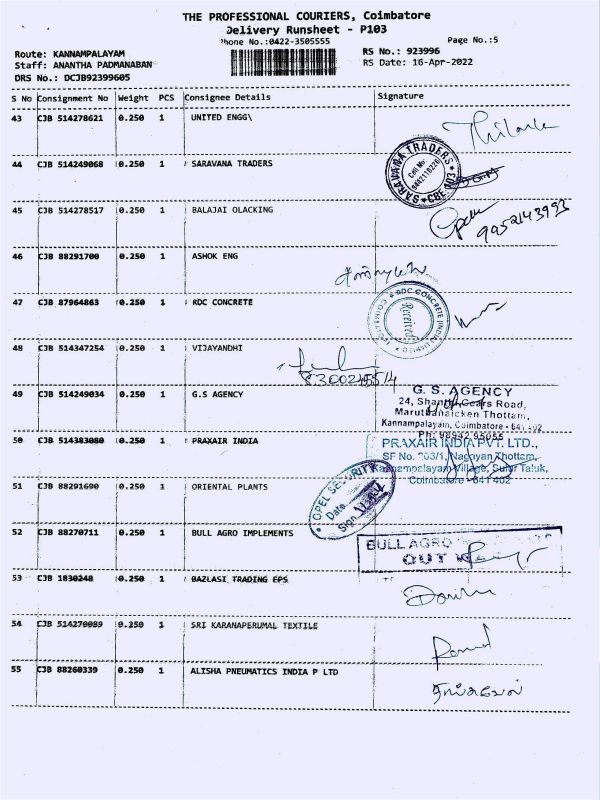 THE PROFESSIONAL COURIERS, Coimbatore
Delivery Runsheet - P103
Phone No.:0422-3505555
Page No.:5
Route: KANNAMPALAYAM
RS No.: 923996
Staff: ANANTHA PADMANABAN
RS Date: 16-Apr-2022
DRS No.: DCJB92399605
S No Consignment No Weight PCS Consignee Details Signature
43 CJB 514278621 0.250 1 UNITED ENGG\
44 CJB 514249068 0.250 1 SARAVANA TRADERS
SARAVANA TRADERS
Cell No:
CBE
45 CJB 514278517 0.250 1 BALAJAI OLACKING
9952143993
46 CJB 88291700 0.250 1 ASHOK ENG
47 CJB 87964863 0.250 1 RDC CONCRETE
RDC CONCRETE (INDIA) LIMITED
Received
48 CJB 514347254 0.250 1 VIJAYANDHI
49 CJB 514249034 0.250 1 G.S AGENCY
G. S. AGENCY
24, Shanthi Gears Road,
Marutha naicken Thottam,
Kannampalayam, Coimbatore - 641 402
Ph: 98942 95055
50 CJB 514383080 0.250 1 PRAXAIR INDIA
PRAXAIR INDIA PVT. LTD.,
SF No. 203/1, Nagayan Thottam,
Kannampalayam Village, Sulur Taluk,
Coimbatore - 641 402
51 CJB 88291690 0.250 1 ORIENTAL PLANTS
OPEL SECURITY
Date
Sign
52 CJB 88270711 0.250 1 BULL AGRO IMPLEMENTS
BULL AGRO
OUT
53 CJB 1830248 0.250 1 GAZLASI TRADING EPS
54 CJB 514270089 0.250 1 SRI KARANAPERUMAL TEXTILE
55 CJB 88260339 0.250 1 ALISHA PNEUMATICS INDIA P LTD